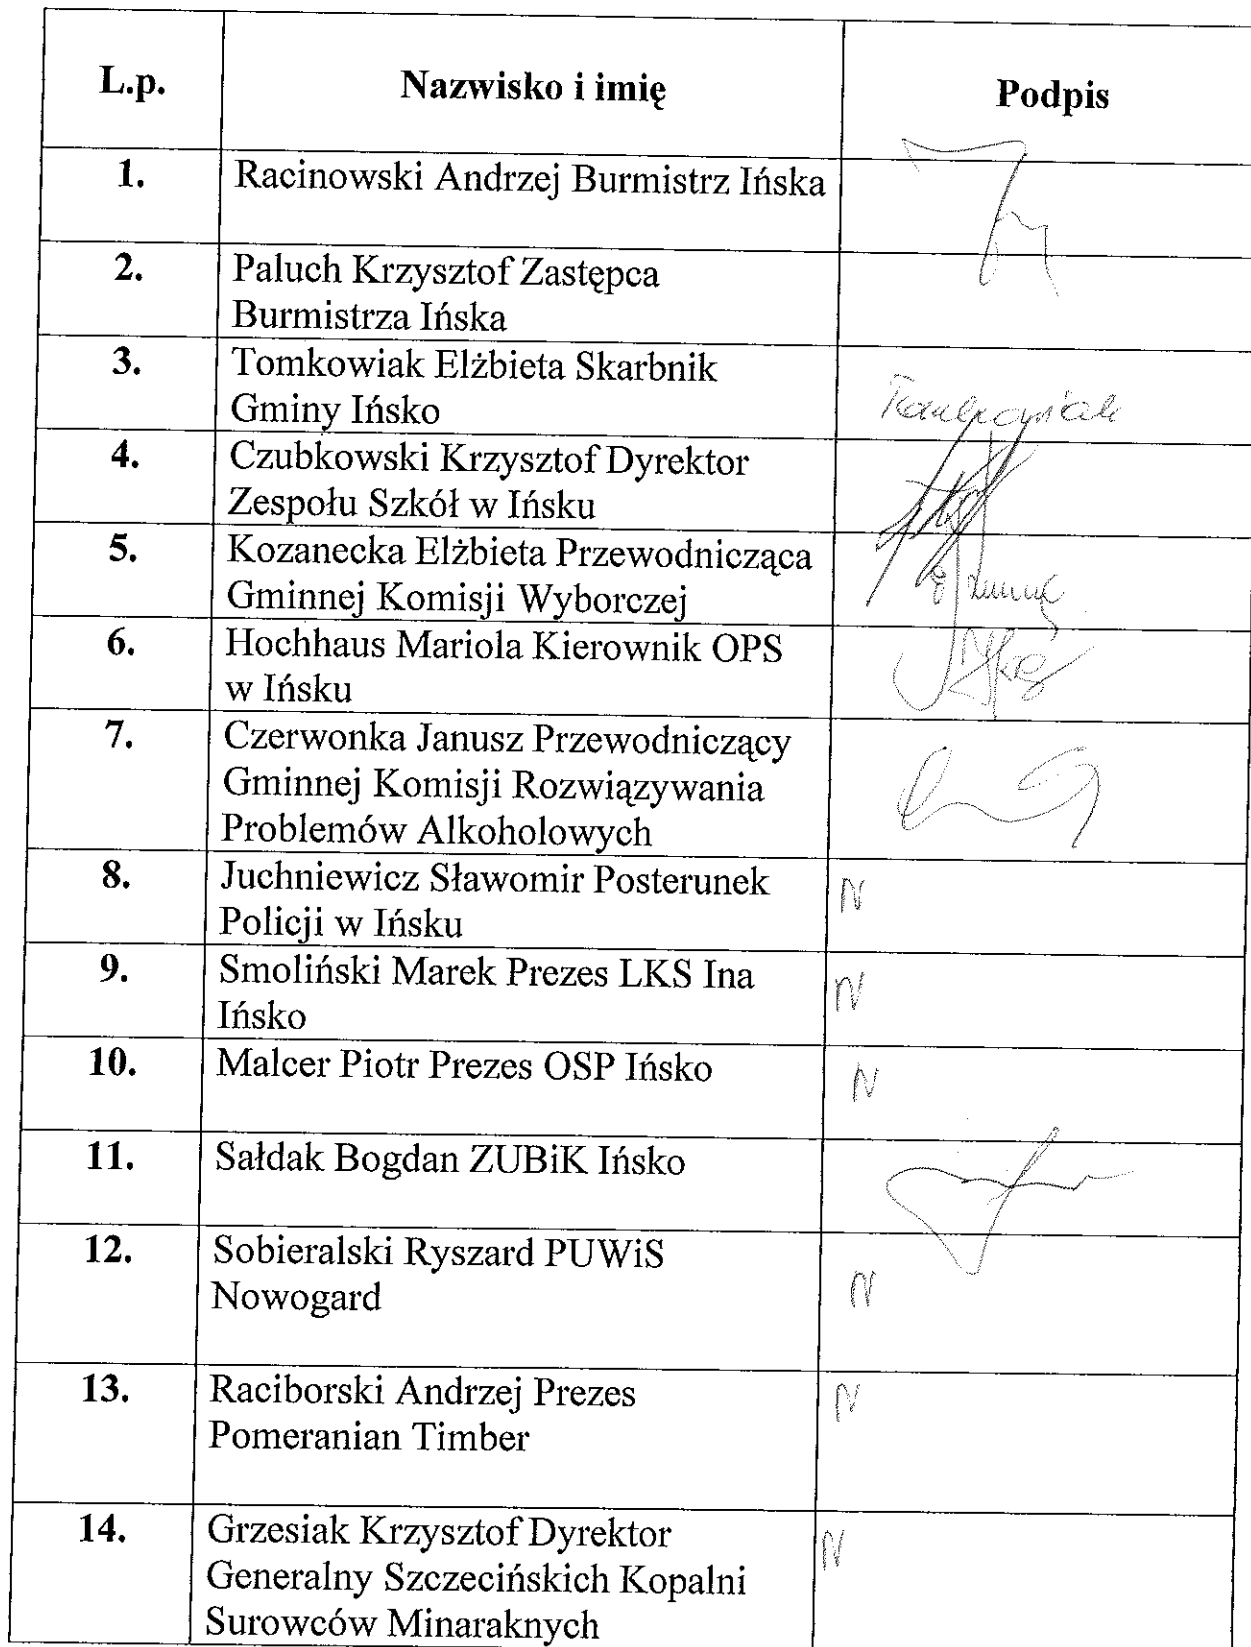 L.p. Nazwisko i imię Podpis
1. Racinowski Andrzej Burmistrz Ińska
2. Paluch Krzysztof Zastępca
Burmistrza Ińska
3. Tomkowiak Elżbieta Skarbnik
Gminy Ińsko
Tomkowiak
4. Czubkowski Krzysztof Dyrektor
Zespołu Szkół w Ińsku
5. Kozanecka Elżbieta Przewodnicząca
Gminnej Komisji Wyborczej
6. Hochhaus Mariola Kierownik OPS
w Ińsku
7. Czerwonka Janusz Przewodniczący
Gminnej Komisji Rozwiązywania
Problemów Alkoholowych
8. Juchniewicz Sławomir Posterunek
Policji w Ińsku
N
9. Smoliński Marek Prezes LKS Ina
Ińsko
N
10. Malcer Piotr Prezes OSP Ińsko
N
11. Sałdak Bogdan ZUBiK Ińsko
12. Sobieralski Ryszard PUWiS
Nowogard
N
13. Raciborski Andrzej Prezes
Pomeranian Timber
N
14. Grzesiak Krzysztof Dyrektor
Generalny Szczecińskich Kopalni
Surowców Minaraknych
N